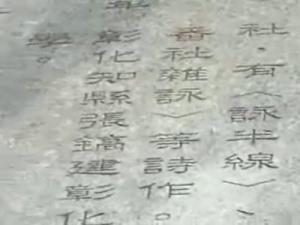 社，有〈詠半線〉、
番社雜詠〉等詩作。
彰化知縣張鎬建彰化
學。